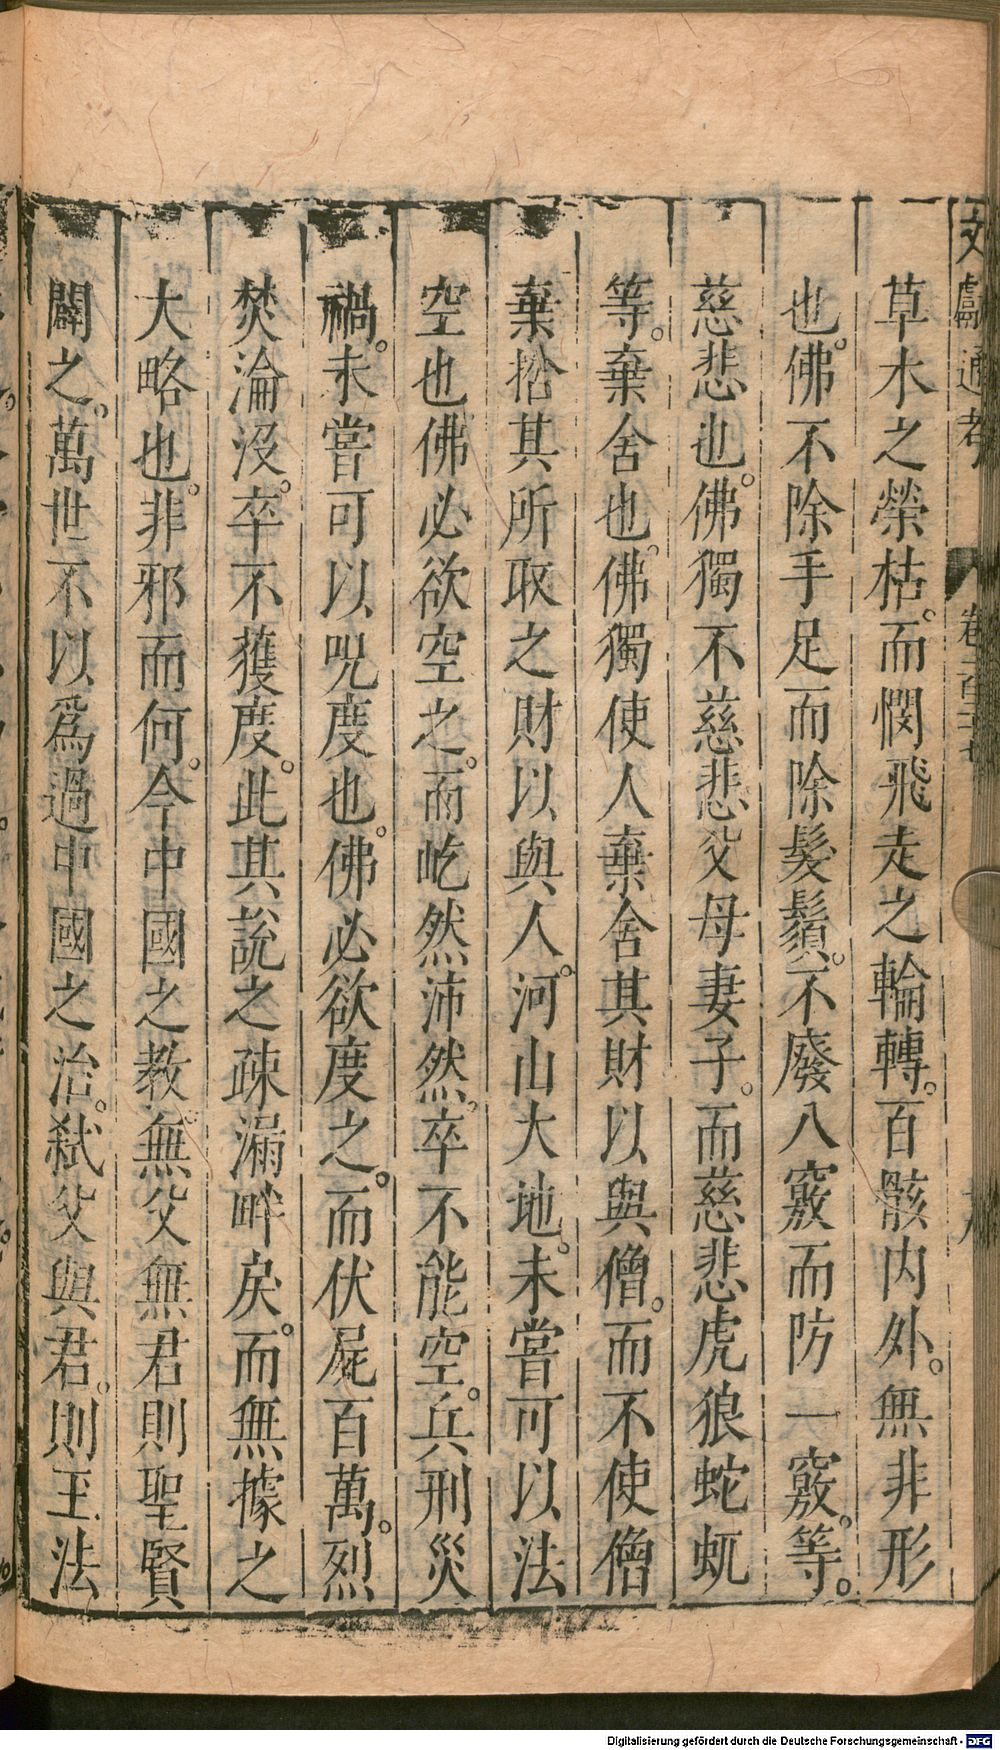 文獻通考 卷二百二十七
草木之榮枯。而憫飛走之輪轉。百骸内外。無非形
也。佛不除手足而除髮鬚。不廢八竅而防一竅。等。
慈悲也。佛獨不慈悲父母妻子。而慈悲虎狼蛇虺
等。棄舍也。佛獨使人棄舍其財以與僧。而不使僧
棄捨其所取之財以與人。河山大地。未嘗可以法
空也佛必欲空之。而屹然沛然。卒不能空。兵刑災
禍。未嘗可以呪度也。佛必欲度之。而伏屍百萬。烈
焚淪沒。卒不獲度。此其説之疎漏畔戾。而無據之
大略也。非邪而何。今中國之教。無父無君則聖賢
闢之。萬世不以爲過中國之治。弑父與君。則王法
Digitalisierung gefördert durch die Deutsche Forschungsgemeinschaft - DFG